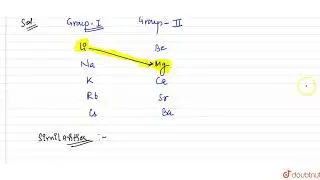 Sol. Group-I Group-II
Li Be
Na Mg
K Ca
Rb Sr
Cs Ba
Similarities :-
doubtnut